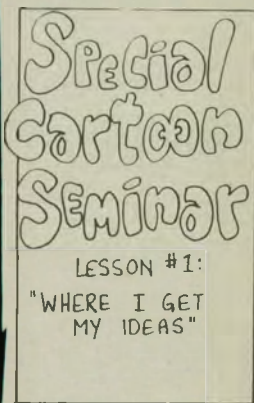 SPECial
Cartoon
SEMinaR
LESSON #1:
"WHERE I GET
MY IDEAS"